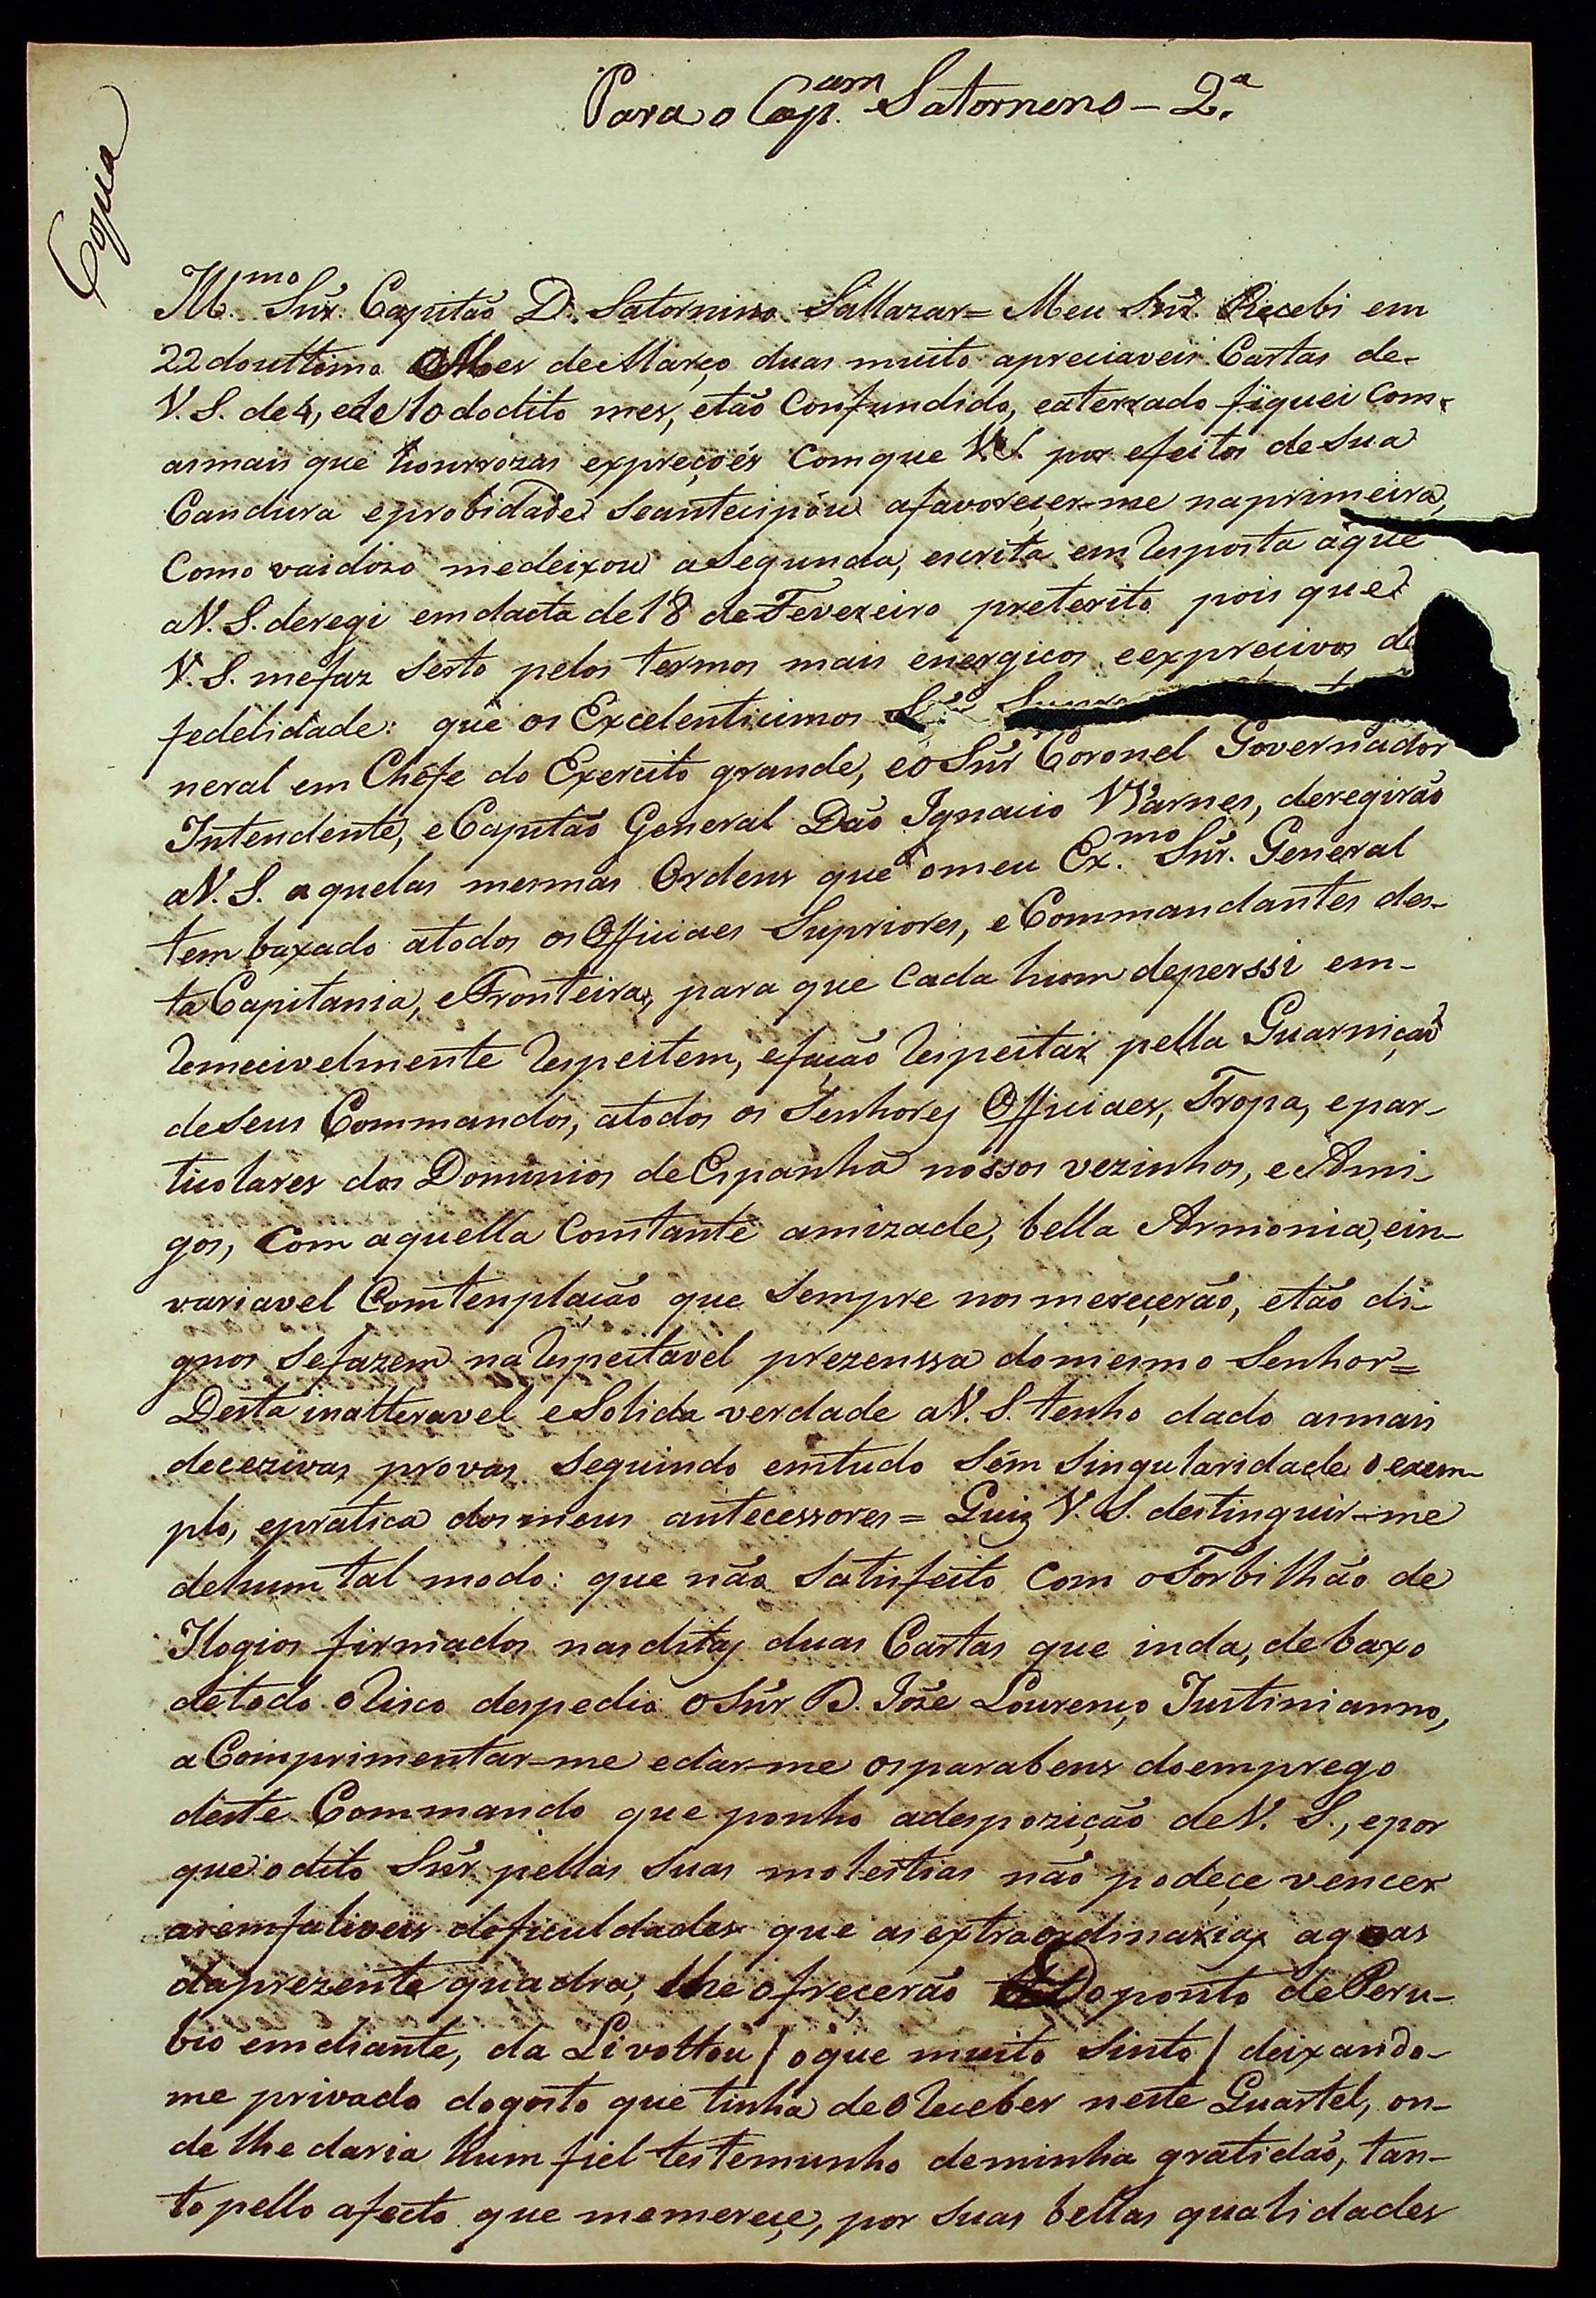 Para o Cap.am Satornino - 2.a
Copia
Ill.mo Snr. Capitão D. Satornino Sallazar = Meu Snr. Recebi em
22 do ulttimo Mes de Março duas muito apreciaveis Cartas de
V. S. de 4, e de 10 do dito mes, e tão Confundido, e aterrado fiquei Com
as mais que honrrozas expreçoés Com que V. S. por efeitos de Sua
Candura e probidade Se antecipóu a favorecer-me na primeira,
Como vaidozo me deixou a Segunda, escrita em Resposta áque
a V. S. deregi em dacta de 18 de Fevereiro preterito pois que
V. S. me faz Serto pelos termos mais energicos e exprecivos de
fedelidade: que os Excelenticimos
neral em Chéfe do Exercito grande, e o Snr Coronel Governador
Intendente, e Capitão General Dão Ignacio Warnes, deregirão
a V. S. aquelas mesmas Ordens que o meu Ex.mo Snr. General
tem baxado a todos os Officiaes Supriores, e Commandantes des-
ta Capitania, e Fronteiras, para que Cada hum de perssi em-
Remecivelmente Respeitem, e fação Respeitar pella Guarnição
de Seus Commandos, a todos os Senhores Officiaes, Tropa, e par-
ticolares dos Dominios de Espanha nossos vezinhos, e Ami-
gos, Com aquella Constante amizade, bella Armonia, e in-
variavel Comtenplação que Sempre nos merecerão, e tão di-
gnos Se fazem na Respeitavel prezenssa do mesmo Senhor =
Desta inalteravel e Solida verdade a V. S. tenho dado as mais
decezivas provas Seguindo em tudo Sem Singularidade o exem-
plo, e pratica dos meus antecessores = Quiz V. S. destinguir-me
de hum tal modo: que não Satisfeito Com o Torbilhão de
Ilogios firmados nas ditas duas Cartas que inda, de baxo
de todo o Risco despedio o Snr D. Joze Lourenço Justinianno,
a Comprimentar-me e dar-me os parabens do emprego
deste Commando que ponho a despozição de V. S., e por
que o dito Snr pellas Suas molestias não podeçe vencer
as emfaliveis deficuldades que as extraordinarias agoas
da prezente quadra, lhe ofreçerão Do ponto de Peru-
bio em diante, da Li volttou / o que muito Sinto / deixando-
me privado do gosto que tinha de o Receber neste Quartel, on-
de lhe daria hum fiel testemunho de minha gratidão, tan-
to pello afecto que me mereçe, por Suas bellas qualidades